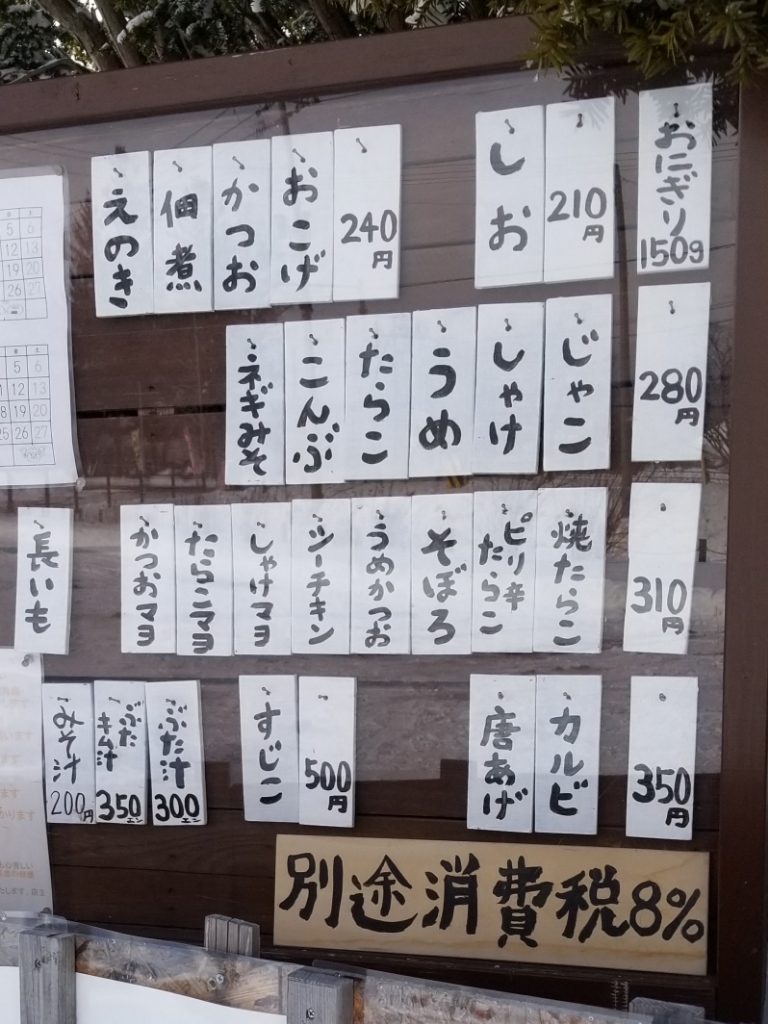 おにぎり
150g
210円
しお
240円
おこげ
かつお
佃煮
えのき
280円
じゃこ
しゃけ
うめ
たらこ
こんぶ
ネギみそ
310円
焼たらこ
ピリ辛たらこ
そぼろ
うめかつお
シーチキン
しゃけマヨ
たらこマヨ
かつおマヨ
長いも
350円
カルビ
唐あげ
500円
すじこ
ぶた汁
300エン
ぶたキム汁
350エン
みそ汁
200円
別途消費税8%
5 6
12 13
19 20
26 27
5 6
12 13
19 20
25 26 27